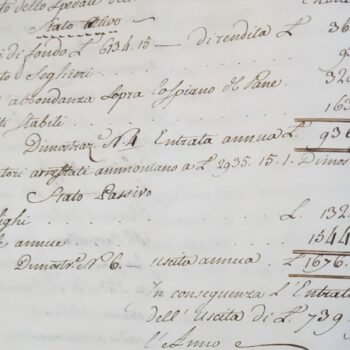 to dello Spedale
Stato Attivo
di fondo L. 6134.15 — di rendita L. 36
to Seghieri
abbondanza sopra l'Appiano del Pane 32
ti Stabili 163
Dimostraz. N. 4 Entrata annua L. 936
tori arrestati ammontano a L. 2935.15.1. Dimos
Stato Passivo
ighi L. 132
e annue 1544
Dimostr. N. 6. — uscita annua L. 1676.
In conseguenza l'Entrata
dell'Uscita di L. 739
l'Anno e